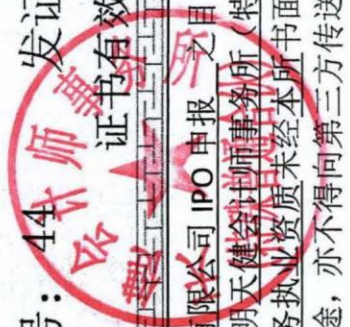 号：44 发证
证书有效
有限公司 IPO 申报 之目
明天健会计师事务所（特
务执业资质未经本所书面
途，亦不得向第三方传送
会计师事务所